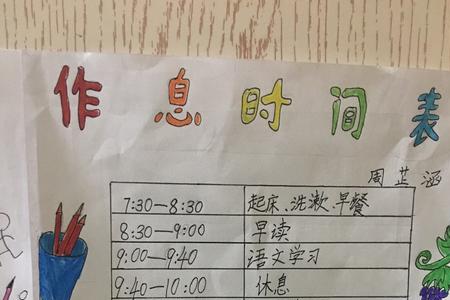 作息时间表
周芷涵
7:30—8:30 起床、洗漱、早餐
8:30—9:00 早读
9:00—9:40 语文学习
9:40—10:00 休息